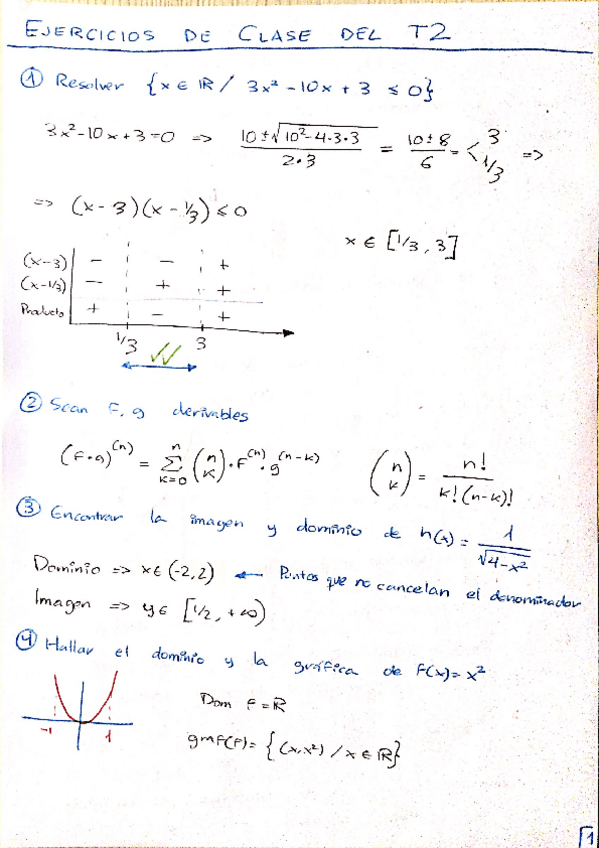 EJERCICIOS DE CLASE DEL T2
① Resolver {x ∈ ℝ / 3x² - 10x + 3 ≤ 0}
3x² - 10x + 3 = 0 => (10 ± √(10² - 4·3·3)) / (2·3) = (10 ± 8) / 6 = < 3 1/3 =>
=> (x - 3)(x - 1/3) ≤ 0
x ∈ [1/3, 3]
(x-3) - - +
(x-1/3) - + +
Producto + - +
1/3 3
② Sean F, g derivables
(F·g)⁽ⁿ⁾ = Σ_{k=0}^{n} (n k) · F⁽ⁿ⁾ · g⁽ⁿ⁻ᵏ⁾ (n k) = n! / k!(n-k)!
③ Encontrar la imagen y dominio de h(x) = 1 / √(4-x²)
Dominio => x ∈ (-2, 2) ← Puntos que no cancelan el denominador
Imagen => y ∈ [1/2, +∞)
④ Hallar el dominio y la gráfica de F(x) = x²
-1 1
Dom F = ℝ
graf(F) = {(x, x²) / x ∈ ℝ}
1